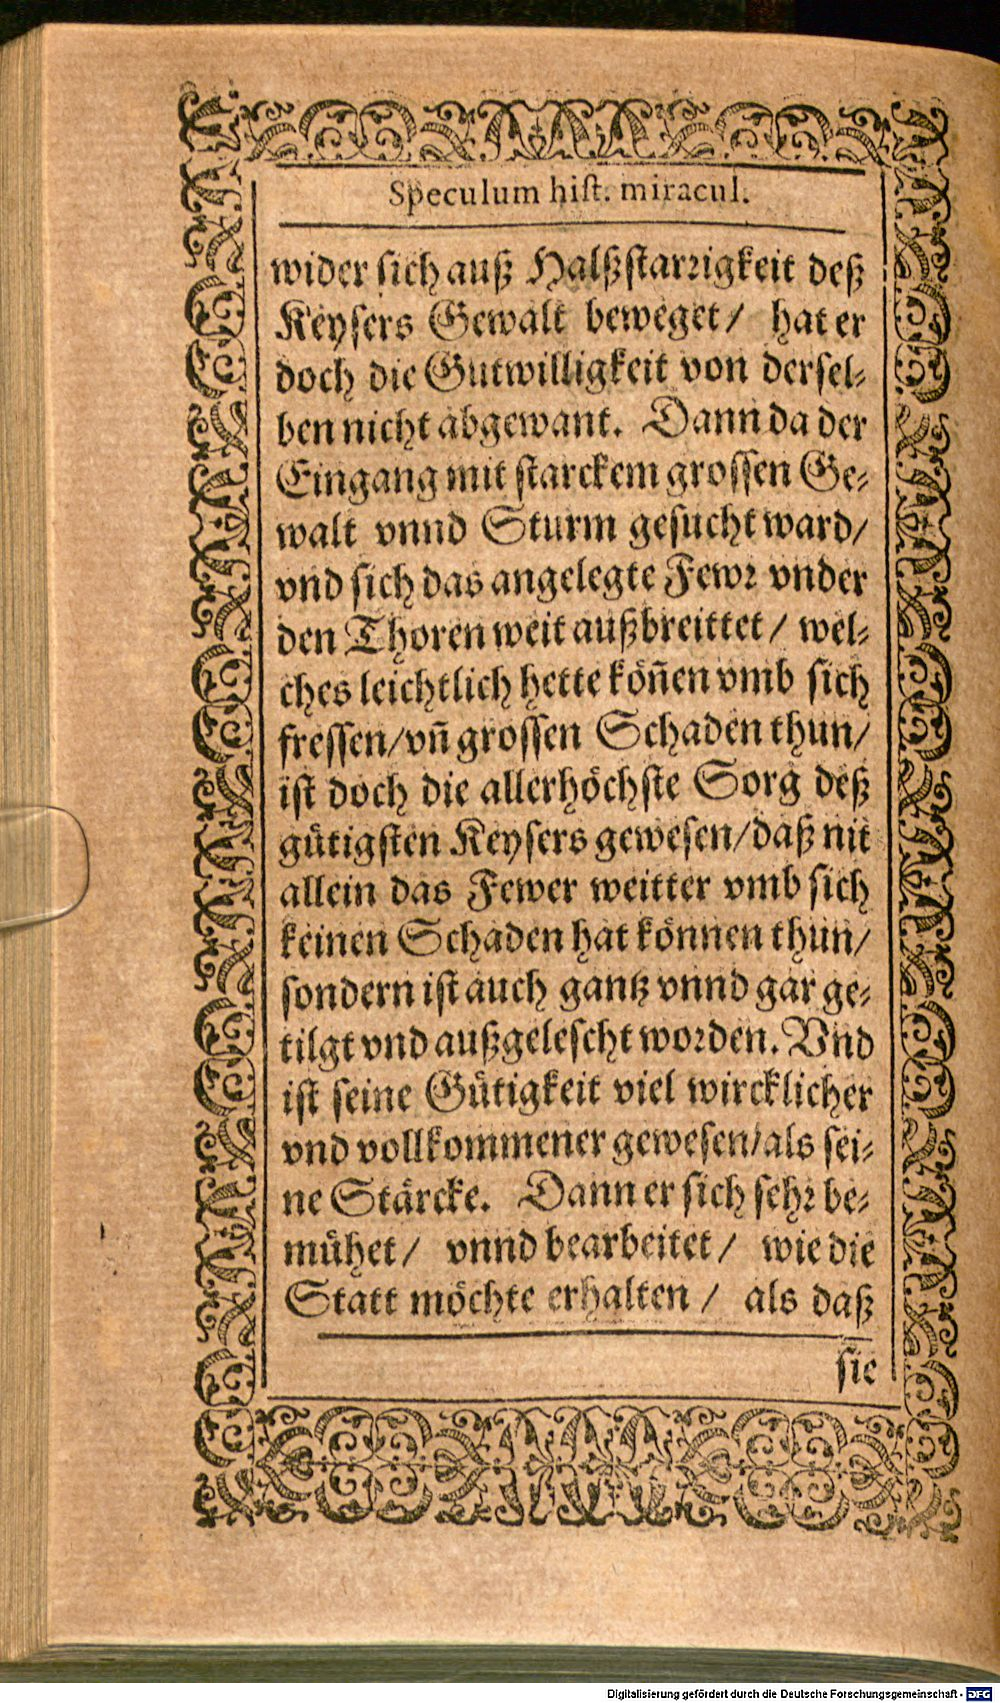 Speculum hist. miracul.
wider sich auß Halßstarrigkeit deß
Keysers Gewalt beweget / hat er
doch die Gutwilligkeit von dersel-
ben nicht abgewant. Dann da der
Eingang mit starckem grossen Ge-
walt vnnd Sturm gesucht ward/
vnd sich das angelegte Fewr vnder
den Thoren weit außbreittet / wel-
ches leichtlich hette köñen vmb sich
fressen/vñ grossen Schaden thun/
ist doch die allerhöchste Sorg deß
gütigsten Keysers gewesen/daß nit
allein das Fewer weitter vmb sich
keinen Schaden hat können thun/
sondern ist auch gantz vnnd gar ge-
tilgt vnd außgelescht worden. Vnd
ist seine Gütigkeit viel wircklicher
vnd vollkommener gewesen/als sei-
ne Stärcke. Dann er sich sehr be-
mühet / vnnd bearbeitet / wie die
Statt möchte erhalten / als daß
sie
Digitalisierung gefördert durch die Deutsche Forschungsgemeinschaft - DFG